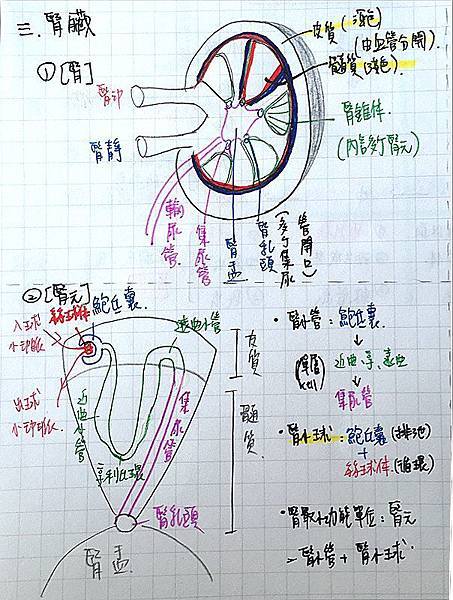 三. 腎臟
①[腎]
皮質(淺色)
(由血管分開)
髓質(深色).
腎動
腎靜
腎錐体
(內含多個腎元)
輸尿管
集尿管
腎盂
腎乳頭
(多個集尿管開口)
②[腎元]
鮑氏囊.
絲球体
入球
小动脈
出球
小动脈
遠曲小管
近曲小管
亨利氏環
集尿管
皮質
髓質
腎乳頭
腎盂
·腎小管:鮑氏囊.
↓
近曲、亨、遠曲
↓
集尿管
·腎小球:鮑氏囊(排泄)
+
絲球体.(循環)
·腎最小功能單位:腎元
=腎小管+腎小球.